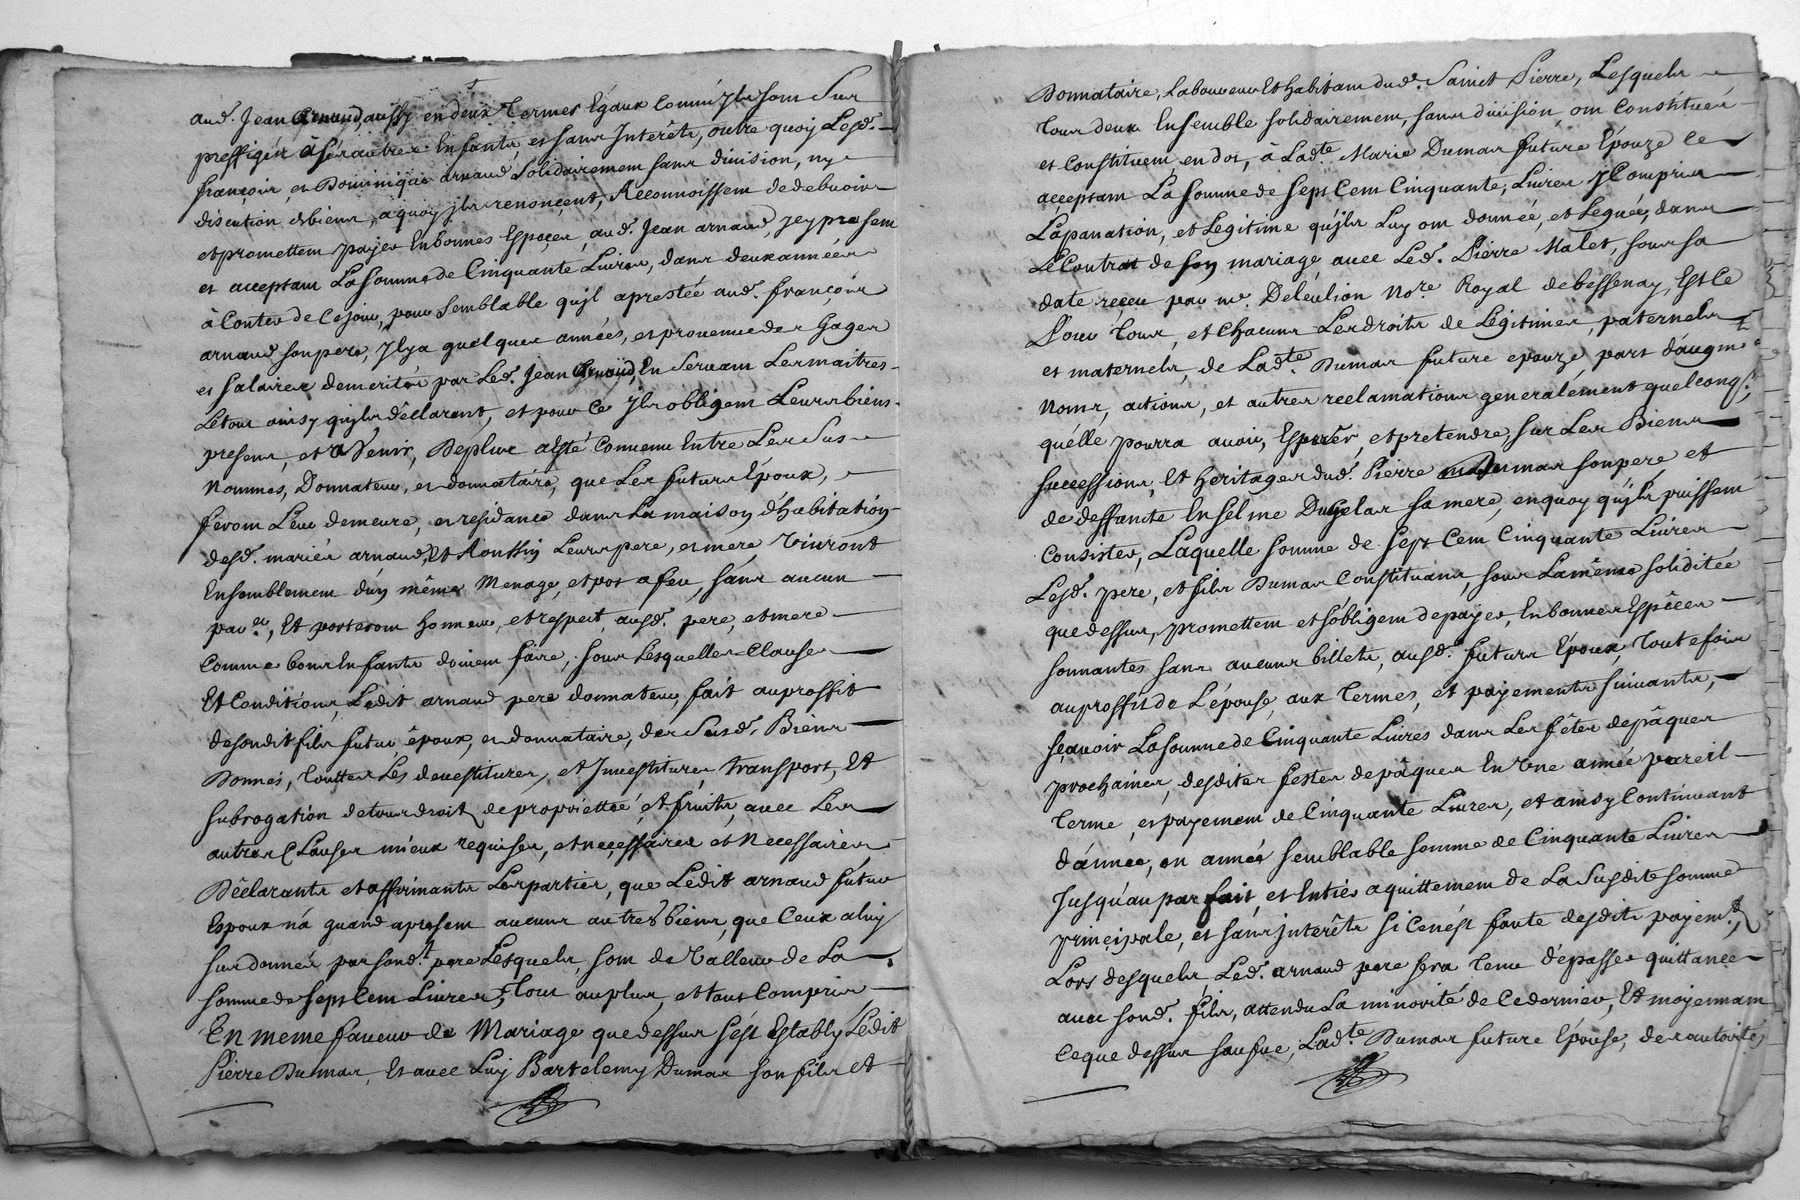 aud. Jean arnaud, aussy en deux termes Egaux Comm'yls sont Sus
preffigés à ses autres Enfants, et sans Interêts, outre quoy Lesd.
françois, et Dominique arnaud solidairement sans division, ny
discution de biens, a quoy jls renonçent, Reconnoissent de debvoir
et promettent payer En bonnes Espeçes, aud. Jean arnaud, jcy present
et acceptant La Somme de Cinquante Livres, dans deux années
à Conter de Ce jour, pour Semblable qu'jl a prestée aud. françois
arnaud son pere, Jl y a quelques années, et provenue des Gages
et Salaires demerités par Led. Jean arnaud, En Servant Les maitres
Le tout ainsy qu'jls déclarent, et pour Ce jls obligent Leurs biens
presens, et a Venir, De plus a Esté Convenu Entre Les Sus
Nommés, Donnateur, et donnataire, que Les futurs Epoux,
feront Leur demeure, et residance dans La maison d'habitation
desd. mariés arnaud, et Ronssin Leurs pere, et mere, Vivront
Ensemblement d'un même Menage, et pot a feu, sans aucun
par er, Et porteront honneur, et respect, ausd. pere, et mere
Comme bons Enfants doivent faire, sous Lesquelles Clauses
Et Conditions, Ledit arnaud pere donnateur, fait au proffit
de sondit fils futur époux, et donnataire, des Susd. Biens
Donnés, touttes Les devestitures, et Jnvestitures transport, Et
subrogation de tous droit de proprietteé, et fruits, avec Les
autres Clauses mieux requises, et neçessaires et Necessaires
Déclarants et affirmants Les parties, que Ledit arnaud futur
Espoux n'a quand a present aucuns autres biens, que Ceux a luy
sus donnés par sond.t pere Lesquels, sont de Valleur de La
somme de sept Cent Livres, Tout au plus, et tout Compris
En meme faveur de Mariage que dessus s'est Estably Ledit
Pierre Dumas, Et avec Luy Bartelemy Dumas son fils et
Donnataire, Laboureur Et habitant dud. Sainct Pierre, Lesquels
tous deux Ensemble solidairement, sans division, ont Constitués
et Constituent en dot, à Ladte. Marie Dumas future Epouze Ce
acceptant La somme de sept Cent Cinquante, Livres y Compris
L'apanation, et Legitime qu'jls Luy ont donnée, et Leguée, dans
Le Contrat de son mariage avec Led. Pierre Malet, sous sa
date reçeu par me. Deleulion Nore. Royal de bessenay, Est Ce
Pour tous, et Chacuns Les droits de Legitimes, paternels
et maternels, de Ladte. Dumas future epouze part d'augmt
Noms, actions, et autres reclamations generalement quelconq;
qu'elle pourra avoir, Esperer, et pretendre, sur Les Biens
successions, Et heritages dud. Pierre Dumas son pere et
de deffuncte Enselme Dugelas sa mere, en quoy qu'jls puissent
Consister, Laquelle somme de sept Cent Cinquante Livres
Lesd. pere, et fils Dumas Constituans, sous La même soliditée
que dessus, promettent et s'obligent de payer, En bonnes Espêces
sonnantes sans aucuns billets, ausd. futurs Epoux, toutefois
au proffit de L'épouse, aux termes, et payements suivants,
sçavoir La somme de Cinquante Livres dans Les fêtes de pâques
prochaines, desdites festes de pâques En Une année pareil
terme, et payement de Cinquante Livres, et ainsy Continuant
d'année, en année semblable somme de Cinquante Livres
Jusqu'au parfait, et Entier aquittement de La Susdite somme
prinçipale, et sans jnterêts si Ce n'est faute desdits payemts.
Lors desquels, Led. arnaud pere sera tenu d'épasser quittance
avec sond. fils, attendu La minorité de Ce dernier, Et moyennant
Ce que dessus sauf ue, Ladte. Dumas future Epouse, des autorités